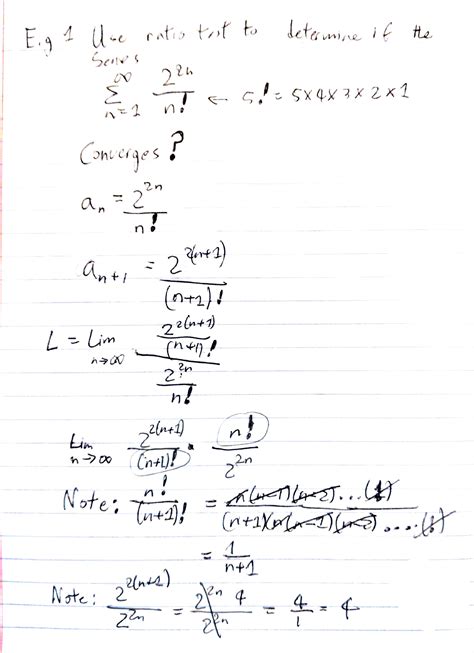 E.g 1 Use ratio test to determine if the
Series
∞
Σ 2^{2n} / n! ← 5! = 5×4×3×2×1
n=1
Converges?
a_n = 2^{2n} / n!
a_{n+1} = 2^{2(n+1)} / (n+1)!
L = Lim n→∞ (2^{2(n+1)} / (n+1)!) / (2^{2n} / n!)
Lim n→∞ 2^{2(n+1)} / (n+1)! · n! / 2^{2n}
Note: n! / (n+1)! = n(n-1)(n-2)...(1) / (n+1)(n(n-1)(n-2)....(1)
= 1 / n+1
Note: 2^{2(n+1)} / 2^{2n} = 2^{2n} 4 / 2^{2n} = 4/1 = 4